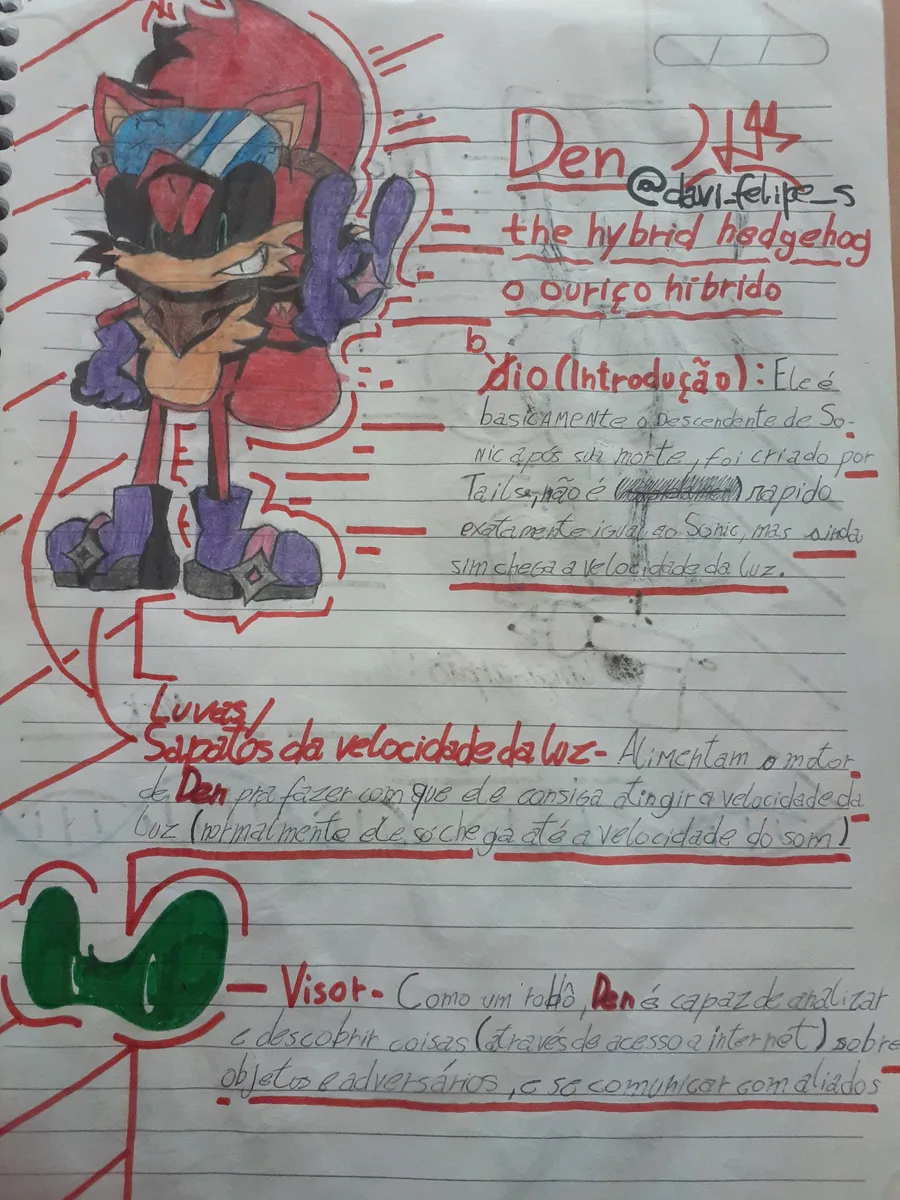 Den
@davi_felipe_s
the hybrid hedgehog
o ouriço hibrido
bio (Introdução): Ele é
basicAMENte o Descendente de So-
nic após sua morte, foi criado por
Tails, não é rapido
exatamente igual ao Sonic, mas ainda
sim chega a velocidade da luz.
Luvas/
Sapatos da velocidade da luz- Alimentam o motor
de Den pra fazer com que ele consiga atingir a velocidade da
luz (normalmente ele só chega até a velocidade do som)
Visor- Como um robô, Den é capaz de analizar
e descobrir coisas (através de acesso a internet) sobre
objetos e adversários, e se comunicar com aliados